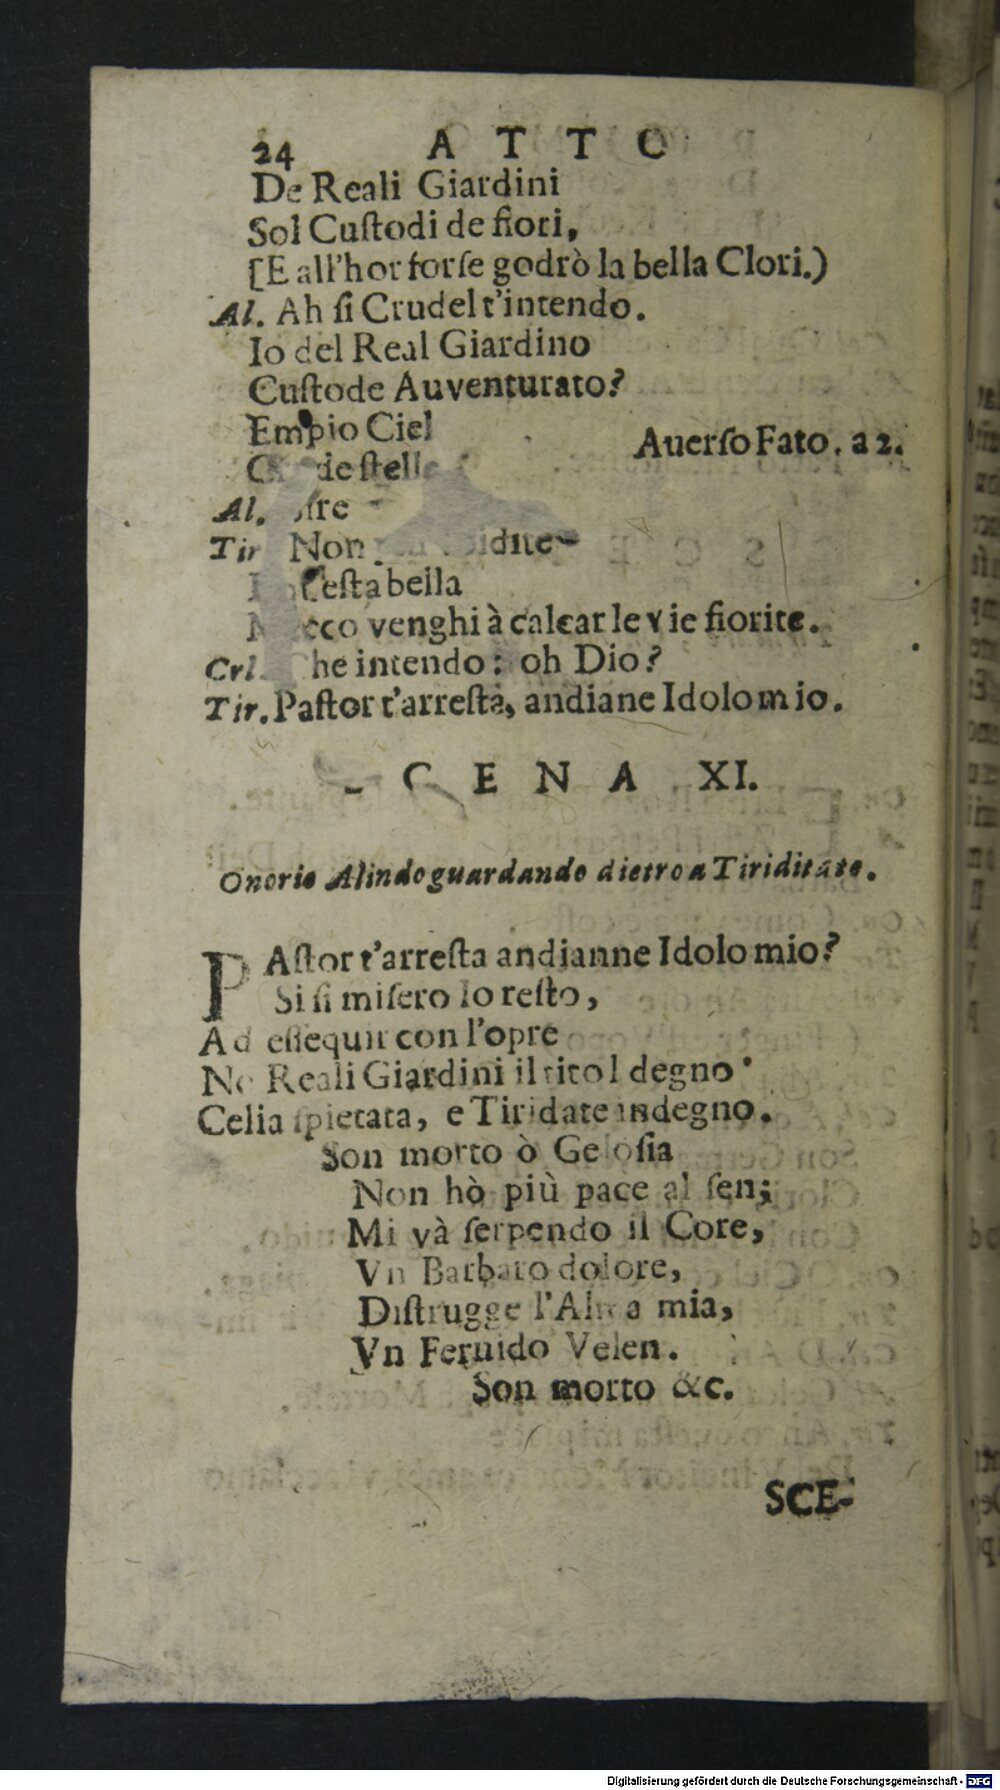 24 ATTO
De Reali Giardini
Sol Cuſtodi de fiori,
[E all'hor forſe godrò la bella Clori.)
Al. Ah ſi Crudel t'intendo.
Io del Real Giardino
Cuſtode Auventurato?
Empio Ciel
Auerſo Fato. a 2.
ſtelle
Al.
Tir Non
bella
venghi à calcar le vie fiorite.
Crl. Che intendo: oh Dio?
Tir. Paſtor t'arreſta, andiane Idolo mio.
SCENA XI.
Onorio Alindo guardando dietro a Tiriditate.
PAſtor t'arreſta andianne Idolo mio?
Si ſi miſero Io reſto,
Ad eſſequir con l'opre
Ne Reali Giardini il titol degno
Celia ſpietata, e Tiridate indegno.
Son morto ò Geloſia
Non hò più pace al ſen;
Mi và ſerpendo il Core,
Vn Barbaro dolore,
Diſtrugge l'Alma mia,
Vn Feruido Velen.
Son morto &c.
SCE-
Digitalisierung gefördert durch die Deutsche Forschungsgemeinschaft - DFG